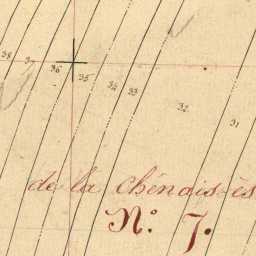 38 37 36 35 34 33 32 31
de la chénais ès
N.º 7.